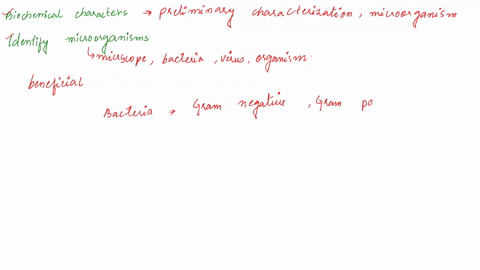 Biochemical characters → preliminary characterization, microorganism
Identify microorganisms
↳ microscope, bacteria, virus. organism.
beneficial
Bacteria → Gram negative, Gram po